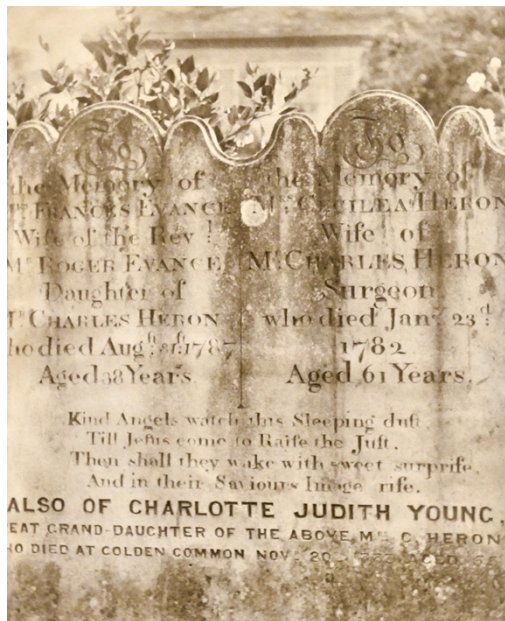 To
the Memory of
Mrs FRANCES EVANCE
Wife of the Revd
Mr ROGER EVANCE
Daughter of
Mr CHARLES HERON
who died Augst 1st 1787
Aged 38 Years.
To
the Memory of
Mrs CECILEA HERON
Wife of
Mr CHARLES HERON
Surgeon
who died Jany 23d
1782
Aged 61 Years.
Kind Angels watch this Sleeping duſt
Till Jeſus come to Raiſe the Juſt.
Then ſhall they wake with ſweet ſurpriſe,
And in their Saviours Image riſe.
ALSO OF CHARLOTTE JUDITH YOUNG,
EAT GRAND-DAUGHTER OF THE ABOVE MRS C. HERON
HO DIED AT COLDEN COMMON NOV. 20